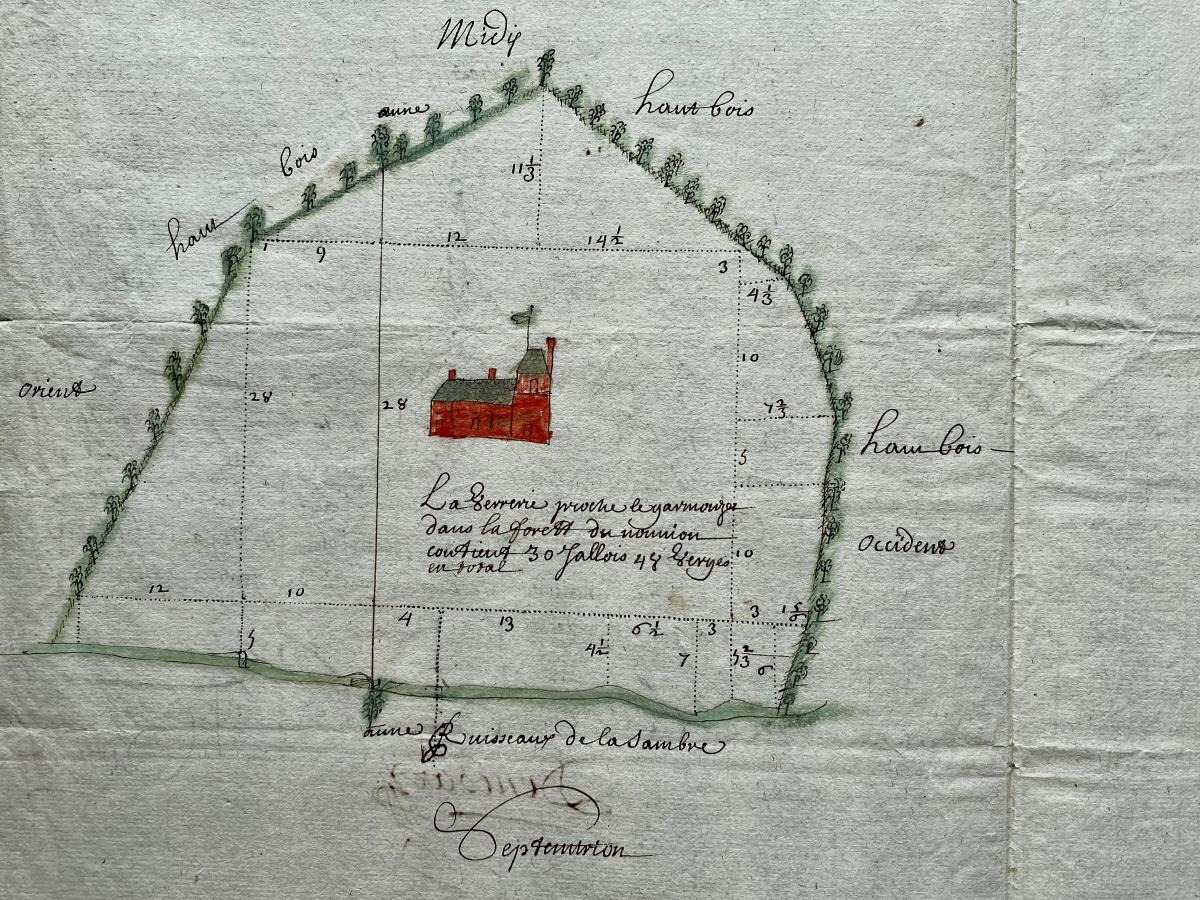 Midij
haut bois
aune
haut bois
11 1/3
12
14 1/2
9
3
4 1/3
10
orient
28
28
7 2/3
haut bois
5
La Verrerie proche le garmouzet
dans la forest du nouuion
contient 30 Jallois 48 Verges
en total
10
occident
12
10
4
13
6 1/2
3
3
1 5/6
5
4 1/2
7
5 2/3
6
aune
Ruisseaux de la Sambre
Septentrion